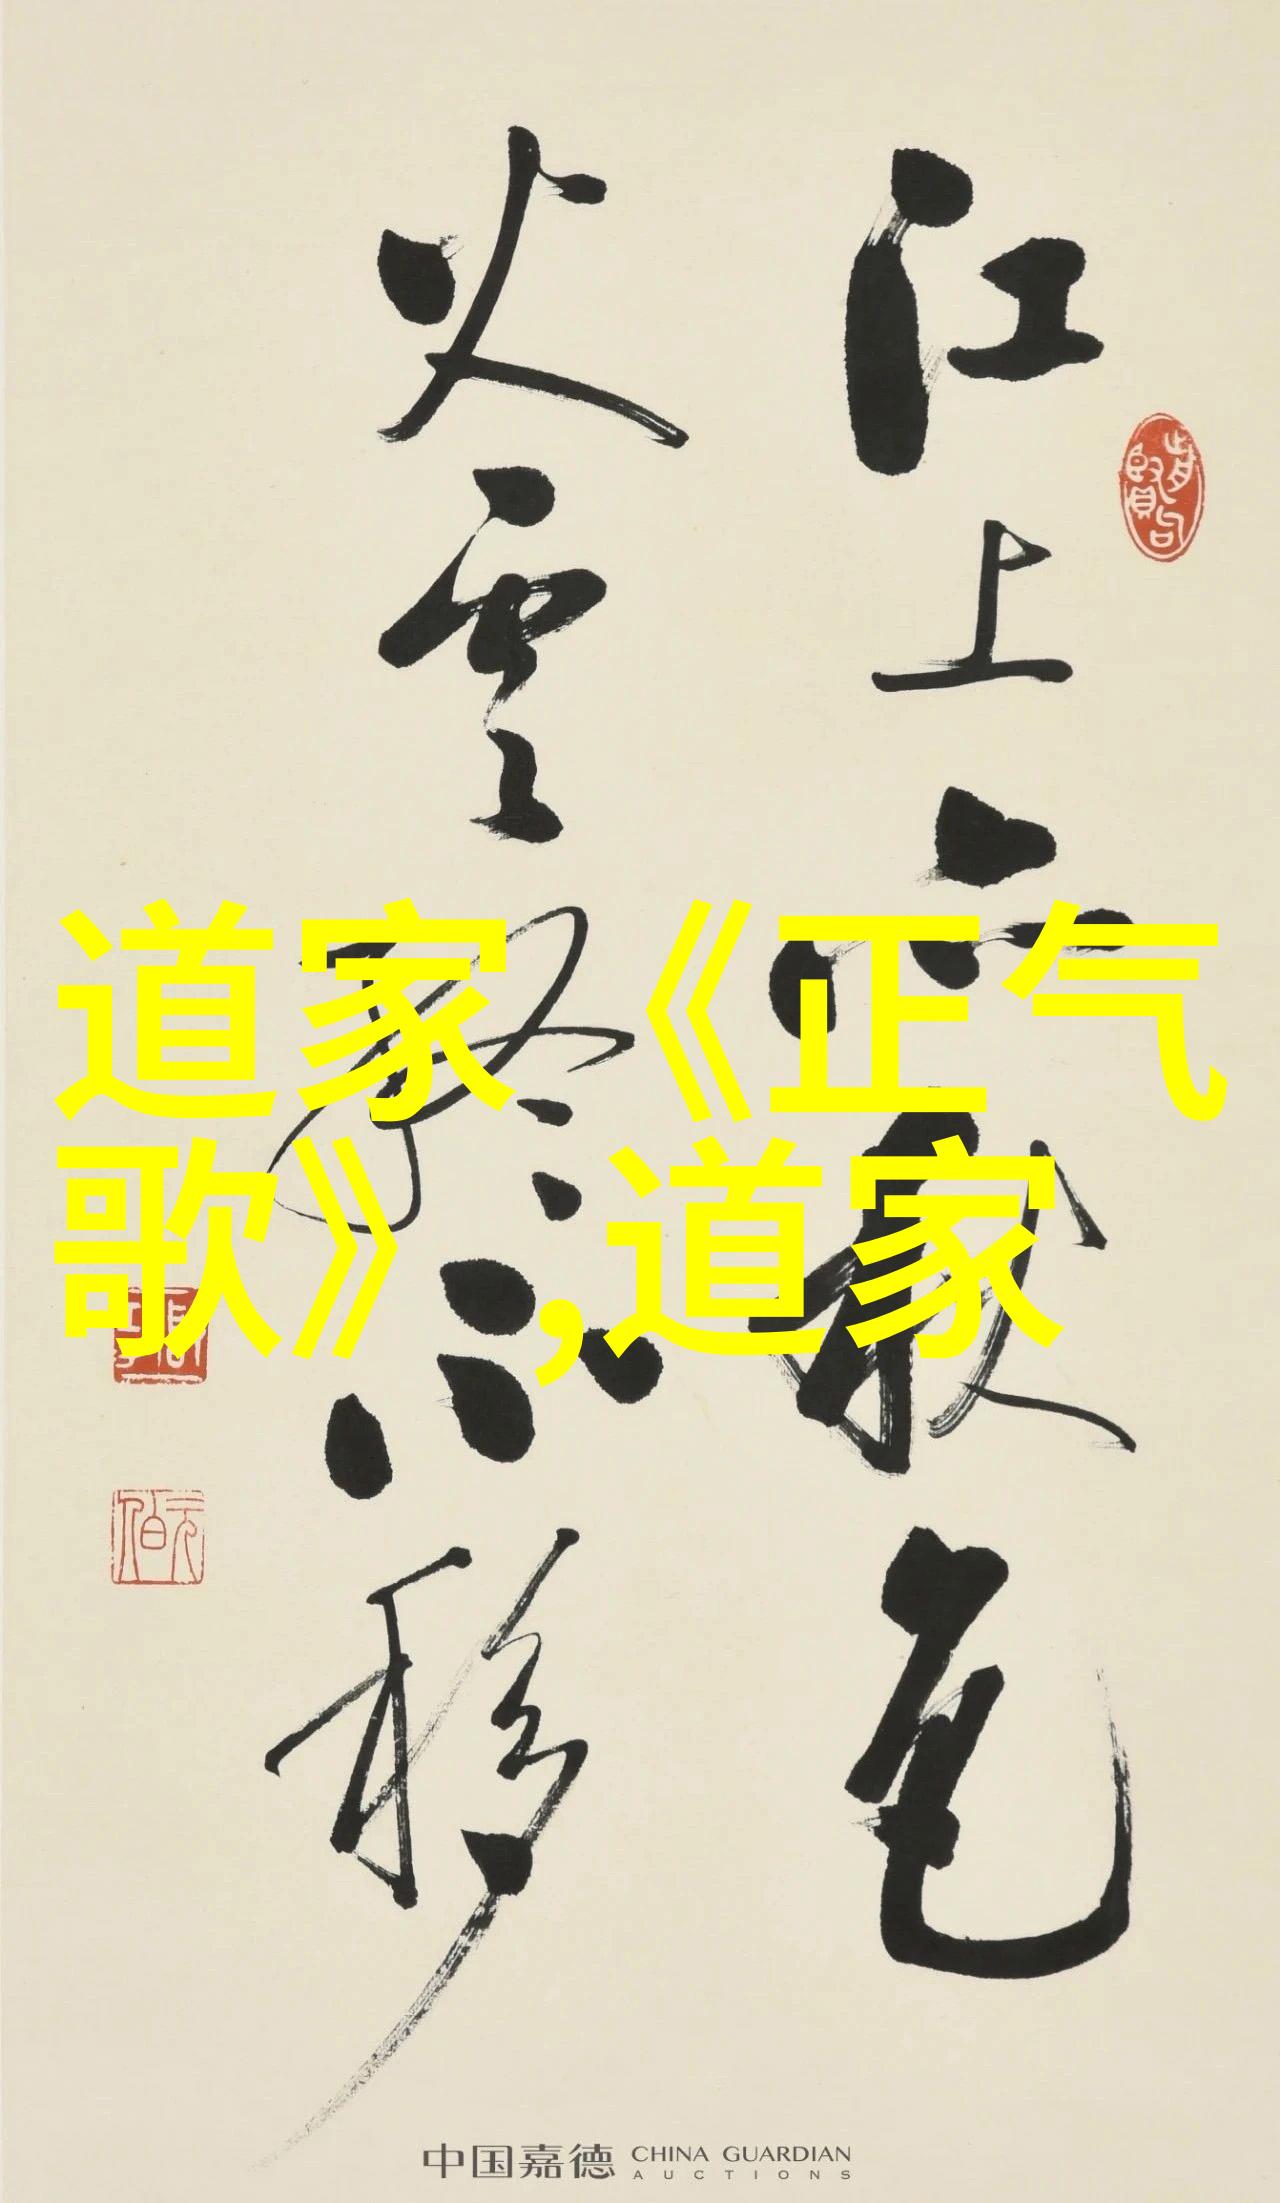 江上亦秋色
火雲終不移
道家《正气
歌》,道家
中国嘉德 CHINA GUARDIAN
AUCTIONS